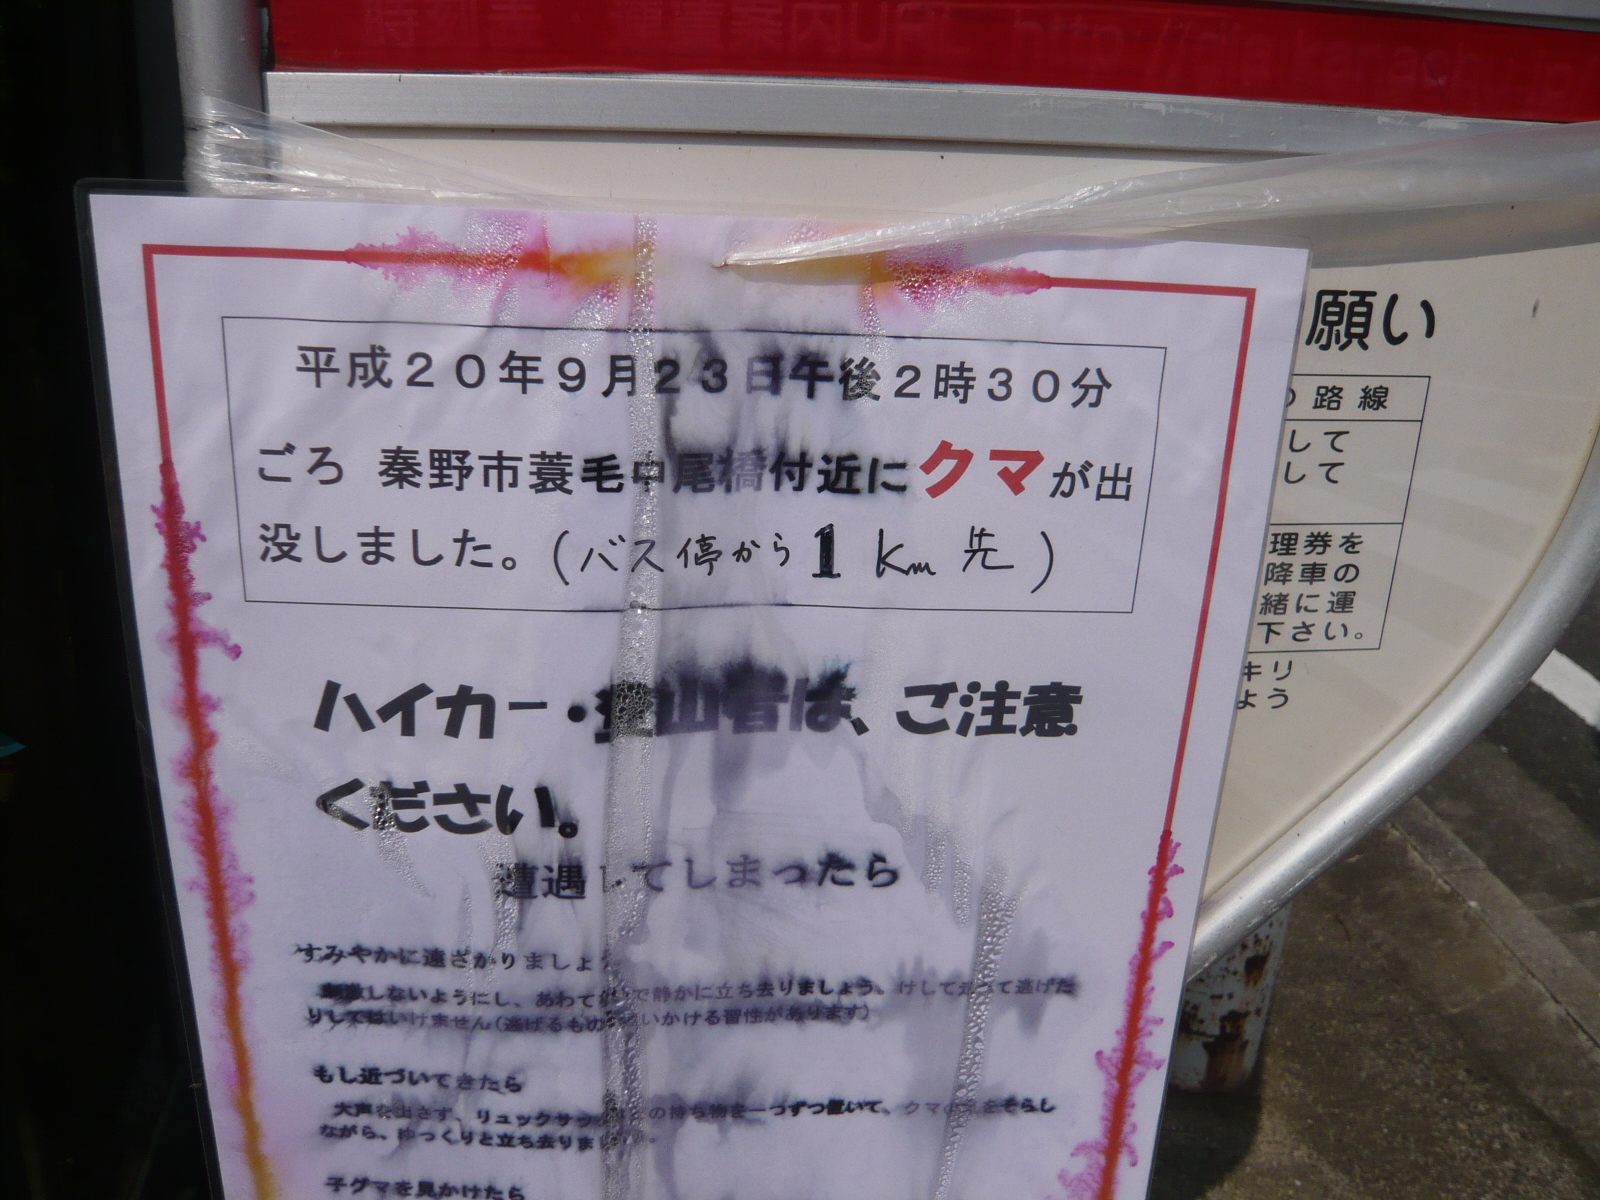 時刻表・運賃案内URL http://dia.kanachu.jp
平成２０年９月２３日午後２時３０分
ごろ 秦野市蓑毛中尾橋付近にクマが出
没しました。(バス停から1km先)
ハイカー・登山者は、ご注意
ください。
遭遇してしまったら
すみやかに遠ざかりましょう
刺激しないようにし、あわてないで静かに立ち去りましょう。けして走って逃げた
りしてはいけません(逃げるものを追いかける習性があります)
もし近づいてきたら
大声を出さず、リュックサックなどの持ち物を一つずつ置いて、クマの気をそらし
ながら、ゆっくりと立ち去りましょう。
子グマを見かけたら
願い
路線
して
して
理券を
降車の
緒に運
下さい。
キリ
よう